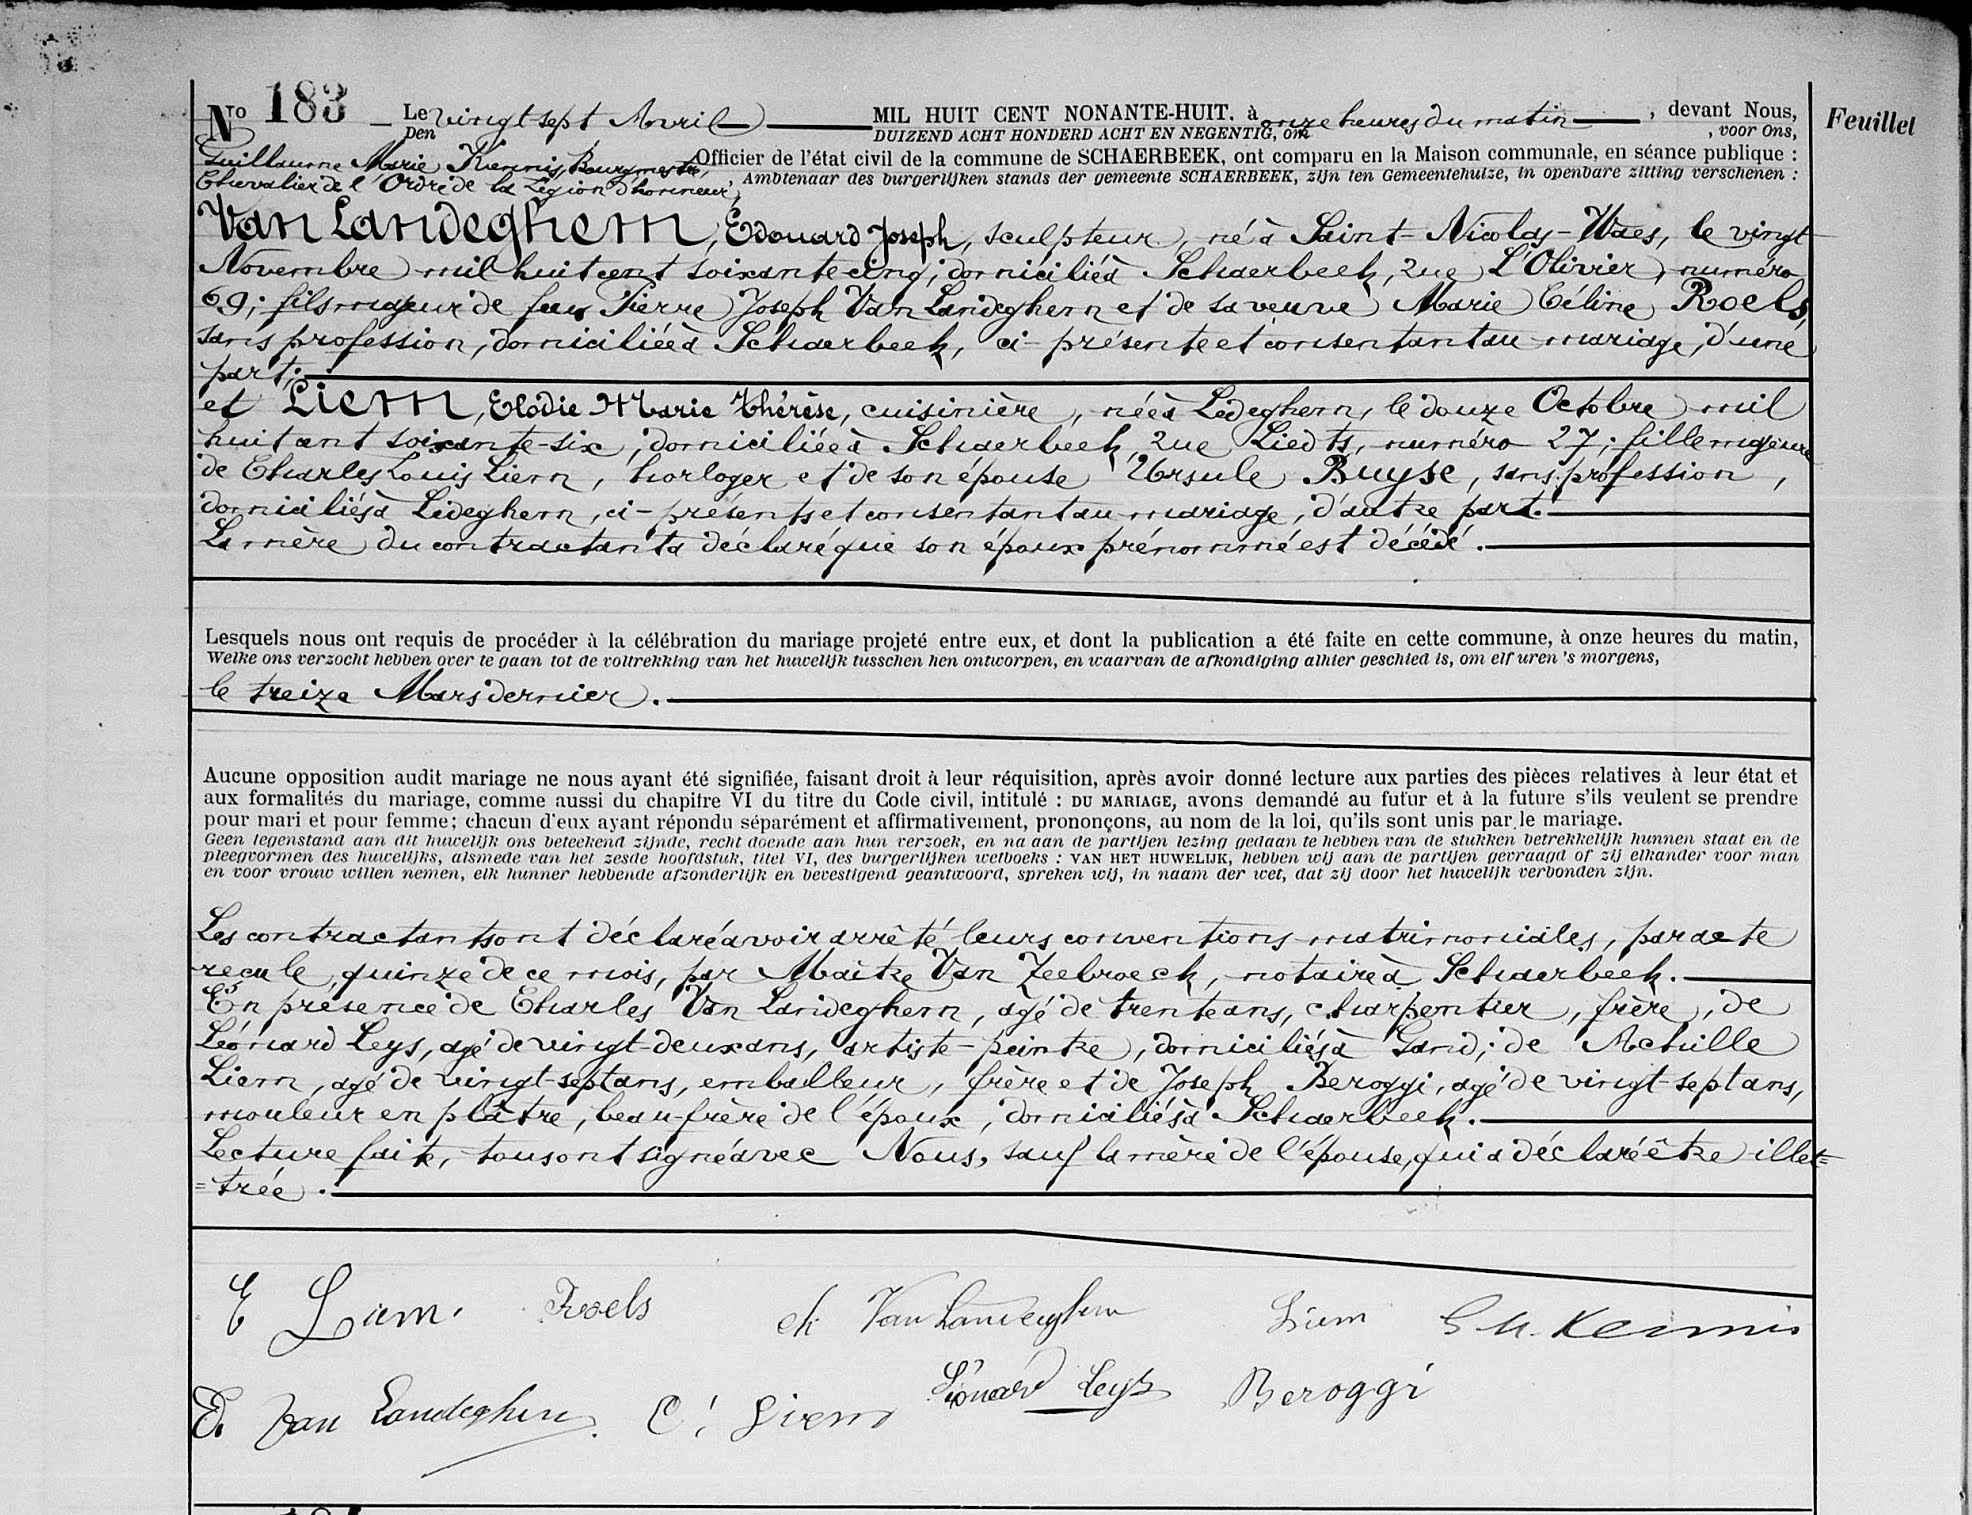 Nro 183 Le vingt sept Avril MIL HUIT CENT NONANTE-HUIT, à onze heures du matin, devant Nous,
Den DUIZEND ACHT HONDERD ACHT EN NEGENTIG, om , voor Ons,
Guillaume Marie Kennis, Bourgmestre, Officier de l'état civil de la commune de SCHAERBEEK, ont comparu en la Maison communale, en séance publique :
Chevalier de l'Ordre de la Légion d'honneur, Ambtenaar des burgerlijken stands der gemeente SCHAERBEEK, zijn ten Gemeentehuize, in openbare zitting verschenen :
Van Landeghem, Edouard Joseph, sculpteur, né à Saint-Nicolas-Waes, le vingt
Novembre mil huit cent soixante-cinq; domicilié à Schaerbeek, rue L'Olivier, numéro
69; fils majeur de feu Pierre Joseph Van Landeghem et de sa veuve Marie Céline Roels,
sans profession, domiciliée à Schaerbeek, ci-présente et consentant au mariage, d'une
part;
et Liem, Elodie Marie Thérèse, cuisinière, née à Ledeghem, le douze Octobre mil
huit cent soixante-six; domiciliée à Schaerbeek, rue Liedts, numéro 27; fille majeure
de Charles Louis Liem, horloger et de son épouse Ursule Buyse, sans profession,
domiciliés à Ledeghem, ci-présents et consentant au mariage, d'autre part.
La mère du contractant a déclaré que son époux prénommé est décédé.
Lesquels nous ont requis de procéder à la célébration du mariage projeté entre eux, et dont la publication a été faite en cette commune, à onze heures du matin,
Welke ons verzocht hebben over te gaan tot de voltrekking van het huwelijk tusschen hen ontworpen, en waarvan de afkondiging alhier geschied is, om elf uren 's morgens,
le treize Mars dernier.
Aucune opposition audit mariage ne nous ayant été signifiée, faisant droit à leur réquisition, après avoir donné lecture aux parties des pièces relatives à leur état et
aux formalités du mariage, comme aussi du chapitre VI du titre du Code civil, intitulé : DU MARIAGE, avons demandé au futur et à la future s'ils veulent se prendre
pour mari et pour femme; chacun d'eux ayant répondu séparément et affirmativement, prononçons, au nom de la loi, qu'ils sont unis par le mariage.
Geen tegenstand aan dit huwelijk ons beteekend zijnde, recht doende aan hun verzoek, en na aan de partijen lezing gedaan te hebben van de stukken betrekkelijk hunnen staat en de
pleegvormen des huwelijks, alsmede van het zesde hoofdstuk, titel VI, des burgerlijken wetboeks : VAN HET HUWELIJK, hebben wij aan de partijen gevraagd of zij elkander voor man
en voor vrouw willen nemen, elk hunner hebbende afzonderlijk en bevestigend geantwoord, spreken wij, in naam der wet, dat zij door het huwelijk verbonden zijn.
Les contractants ont déclaré avoir arrêté leurs conventions matrimoniales, par acte
reçu le quinze de ce mois, par Maître Van Zeebroeck, notaire à Schaerbeek.
En présence de Charles Van Landeghem, agé de trente ans, charpentier, frère, de
Léonard Leys, agé de vingt-deux ans, artiste-peintre, domiciliés à Gand; de Achille
Liem, agé de vingt-sept ans, emballeur, frère et de Joseph Beroggi, agé de vingt-sept ans,
mouleur en plâtre, beau-frère de l'époux, domiciliés à Schaerbeek.
Lecture faite, tous ont signé avec Nous, sauf la mère de l'épouse, qui a déclaré être illet=
=trée.
E Liem Roels ch Van Landeghem Liem G M. Kennis
Ed Van Landeghem C. Liem Léonard Leys Beroggi
Feuillet